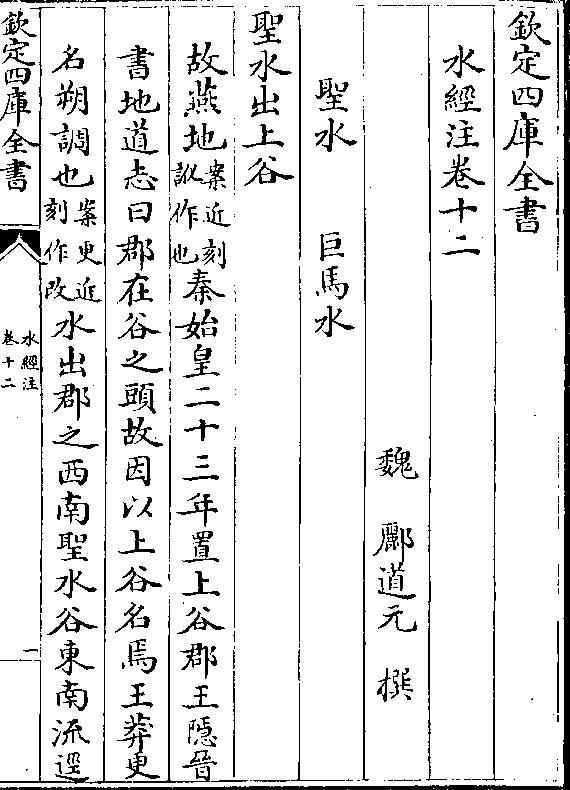 欽定四庫全書
水經注卷十二
魏 酈道元 撰
聖水 巨馬水
聖水出上谷
故燕地案近刻訛作也秦始皇二十三年置上谷郡王隱晉
書地道志曰郡在谷之頭故因以上谷名焉王莽更
名朔調也案更近刻作改水出郡之西南聖水谷東南流逕
欽定四庫全書
水經注
卷十二
一